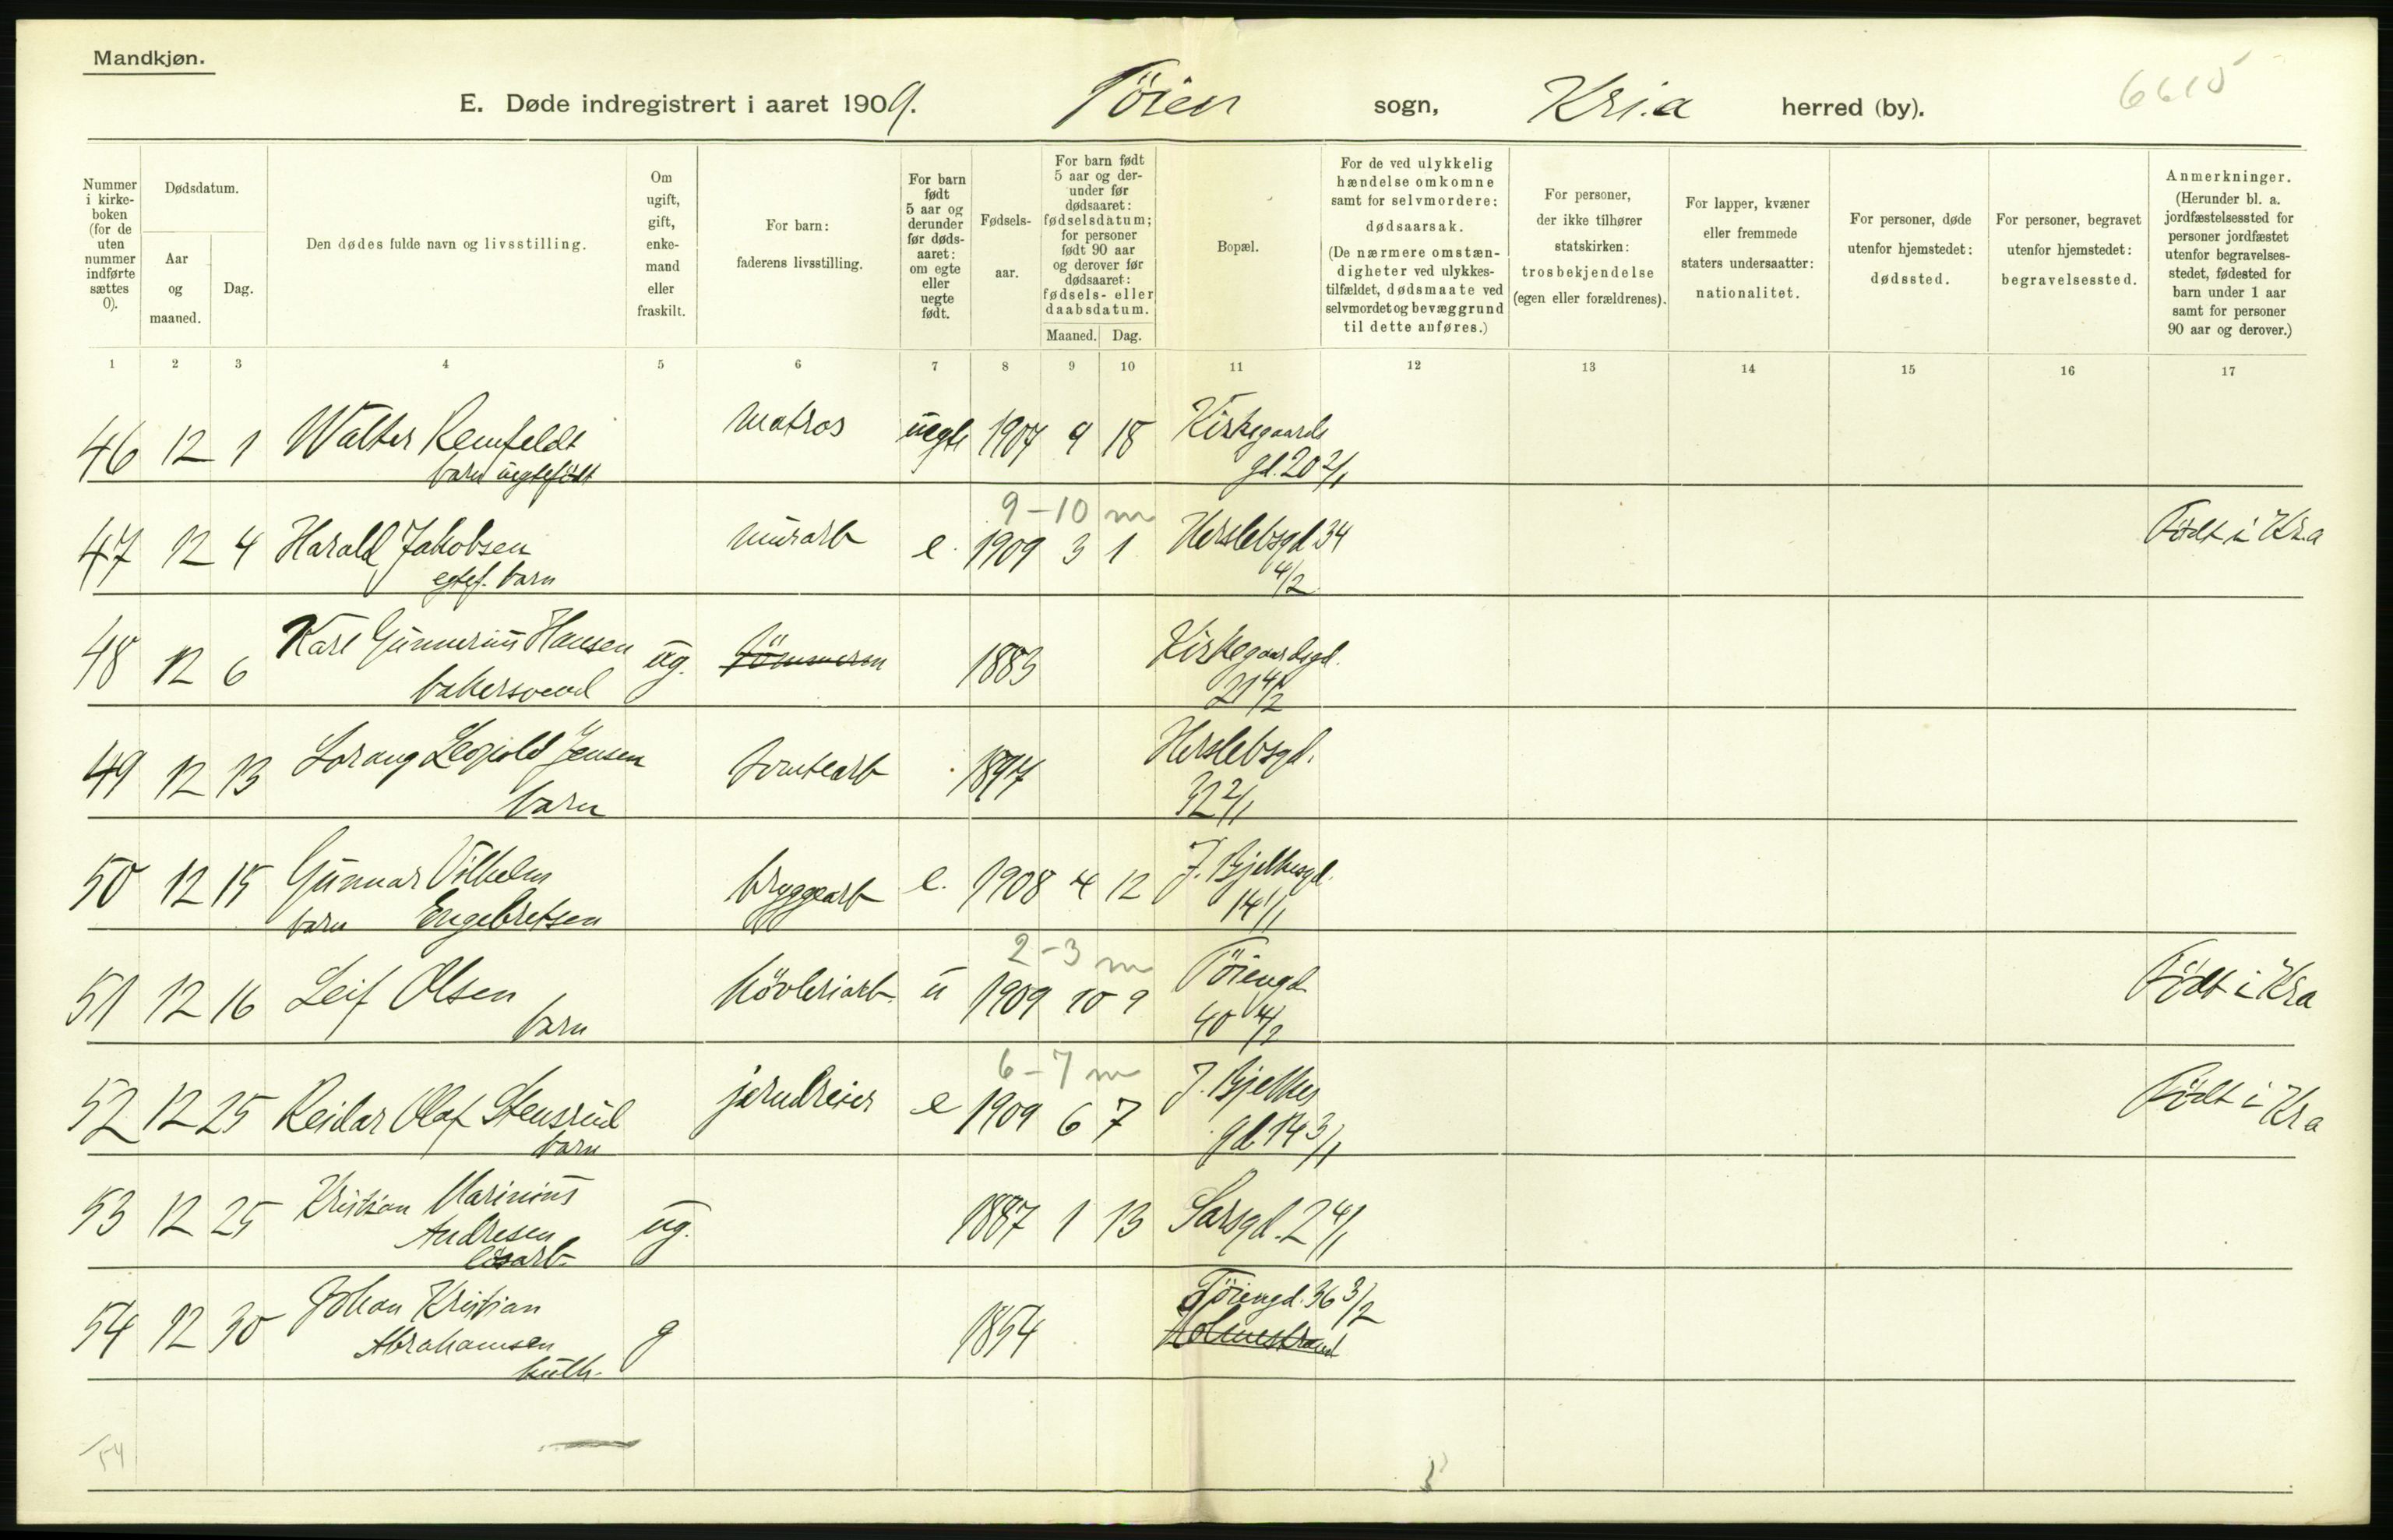 Mandkjøn.
E. Døde indregistrert i aaret 1909. Töien sogn, Kri.a herred (by). 6615
Nummer i kirke-boken (for de uten nummer indførte sættes 0).
Dødsdatum.
Aar og maaned.
Dag.
Den dødes fulde navn og livsstilling.
Om ugift, gift, enke-mand eller fraskilt.
For barn: faderens livsstilling.
For barn født 5 aar og derunder før døds-aaret: om egte eller uegte født.
Fødsels-aar.
For barn født 5 aar og der-under før dødsaaret: fødselsdatum; for personer født 90 aar og derover før dødsaaret: fødsels- eller daabsdatum.
Maaned. Dag.
Bopæl.
For de ved ulykkelig hændelse omkomne samt for selvmordere: dødsaarsak. (De nærmere omstæn-digheter ved ulykkes-tilfældet, dødsmaate ved selvmordet og bevæggrund til dette anføres.)
For personer, der ikke tilhører statskirken: trosbekjendelse (egen eller forældrenes).
For lapper, kvæner eller fremmede staters undersaatter: nationalitet.
For personer, døde utenfor hjemstedet: dødssted.
For personer, begravet utenfor hjemstedet: begravelsessted.
Anmerkninger. (Herunder bl. a. jordfæstelsessted for personer jordfæstet utenfor begravelses-stedet, fødested for barn under 1 aar samt for personer 90 aar og derover.)
1 2 3 4 5 6 7 8 9 10 11 12 13 14 15 16 17
46 12 1 Walter Remfeldt matros uegte 1907 9 18 Kirkegaards
barn uegtefödt gd. 20 2/1
9-10 m
47 12 4 Harald Jakobsen murarb e. 1909 3 1 Herslebsgd 34 Födt i Kr.a
egtef. barn 4/2
48 12 6 Karl Gunnerius Hansen ug. tömmerm 1883 Kirkegaardsgd.
bakersvend 21 4/2
49 12 13 Lorang Leopold Jensen tomtearb 1897 Herslebsgd.
barn 32 2/1
50 12 15 Gunnar Vilhelm bryggearb e. 1908 4 12 J. Bjelkesgd.
barn Engebretsen 14 1/1
2-3 m
51 12 16 Leif Olsen hövleriarb. u 1909 10 9 Töiengd Födt i Kra
barn 40 4/2
6-7 m
52 12 25 Reidar Olaf Stensrud jerndreier e 1909 6 7 J. Bjelkes Födt i Kra
barn gd 14 3/1
53 12 25 Kristian Marinius ug. 1887 1 13 Sarsgd. 2 4/1
Andresen
lösarb.
54 12 30 Johan Kristian g 1854 Töiengd. 36 3/2
Abrahamsen Holmestrand
54